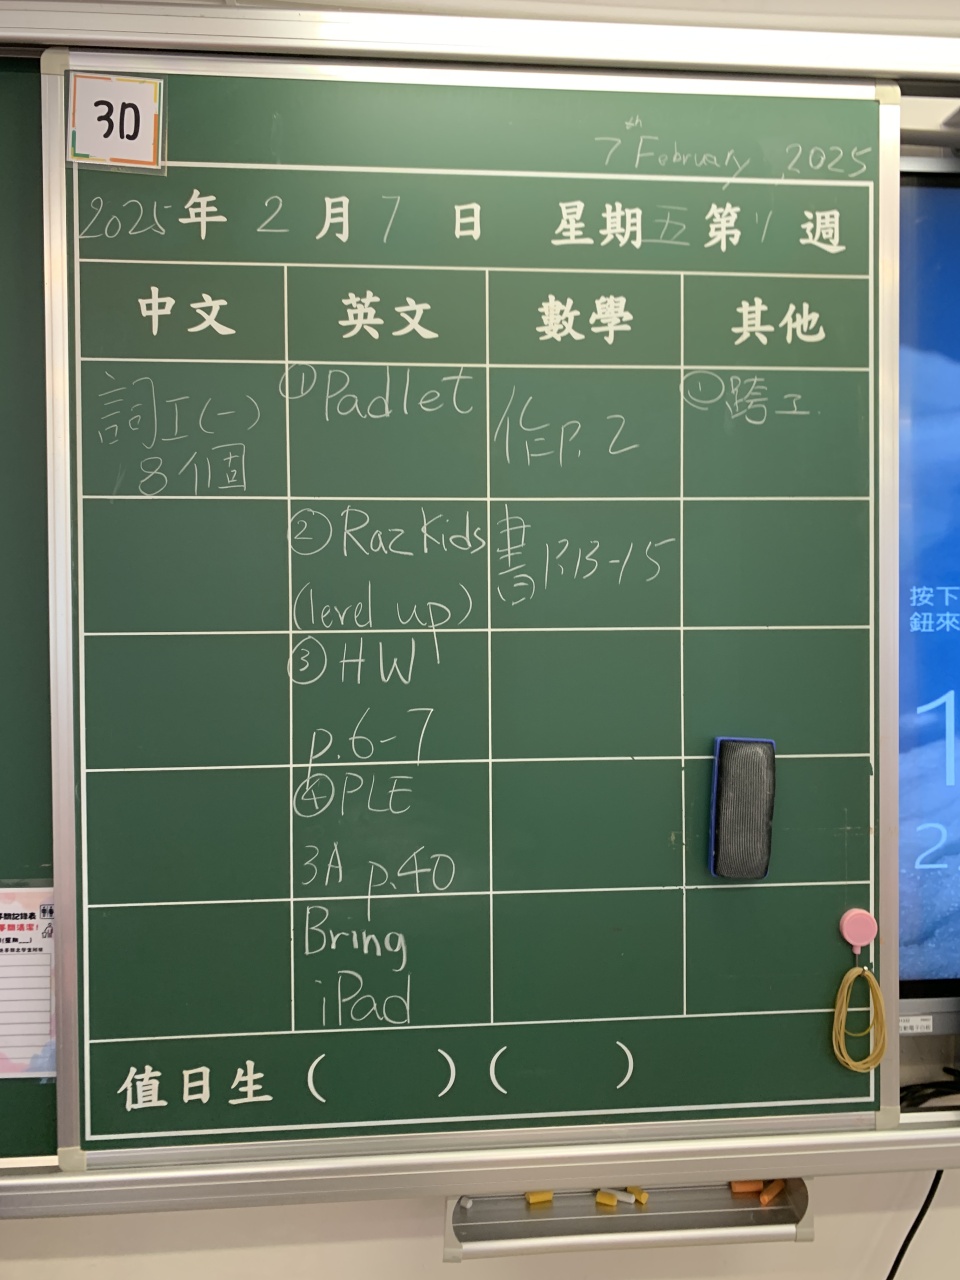 3D
7th February, 2025
2025年 2 月 7 日 星期五 第 11 週
中文 英文 數學 其他
詞工(一)
8個
①Padlet
作P.2
①跨工
②Raz Kids
(level up)
書P.13-15
③HW
p.6-7
④PLE
3A p.40
Bring
iPad
值日生( )( )
按下
鈕來
1
2